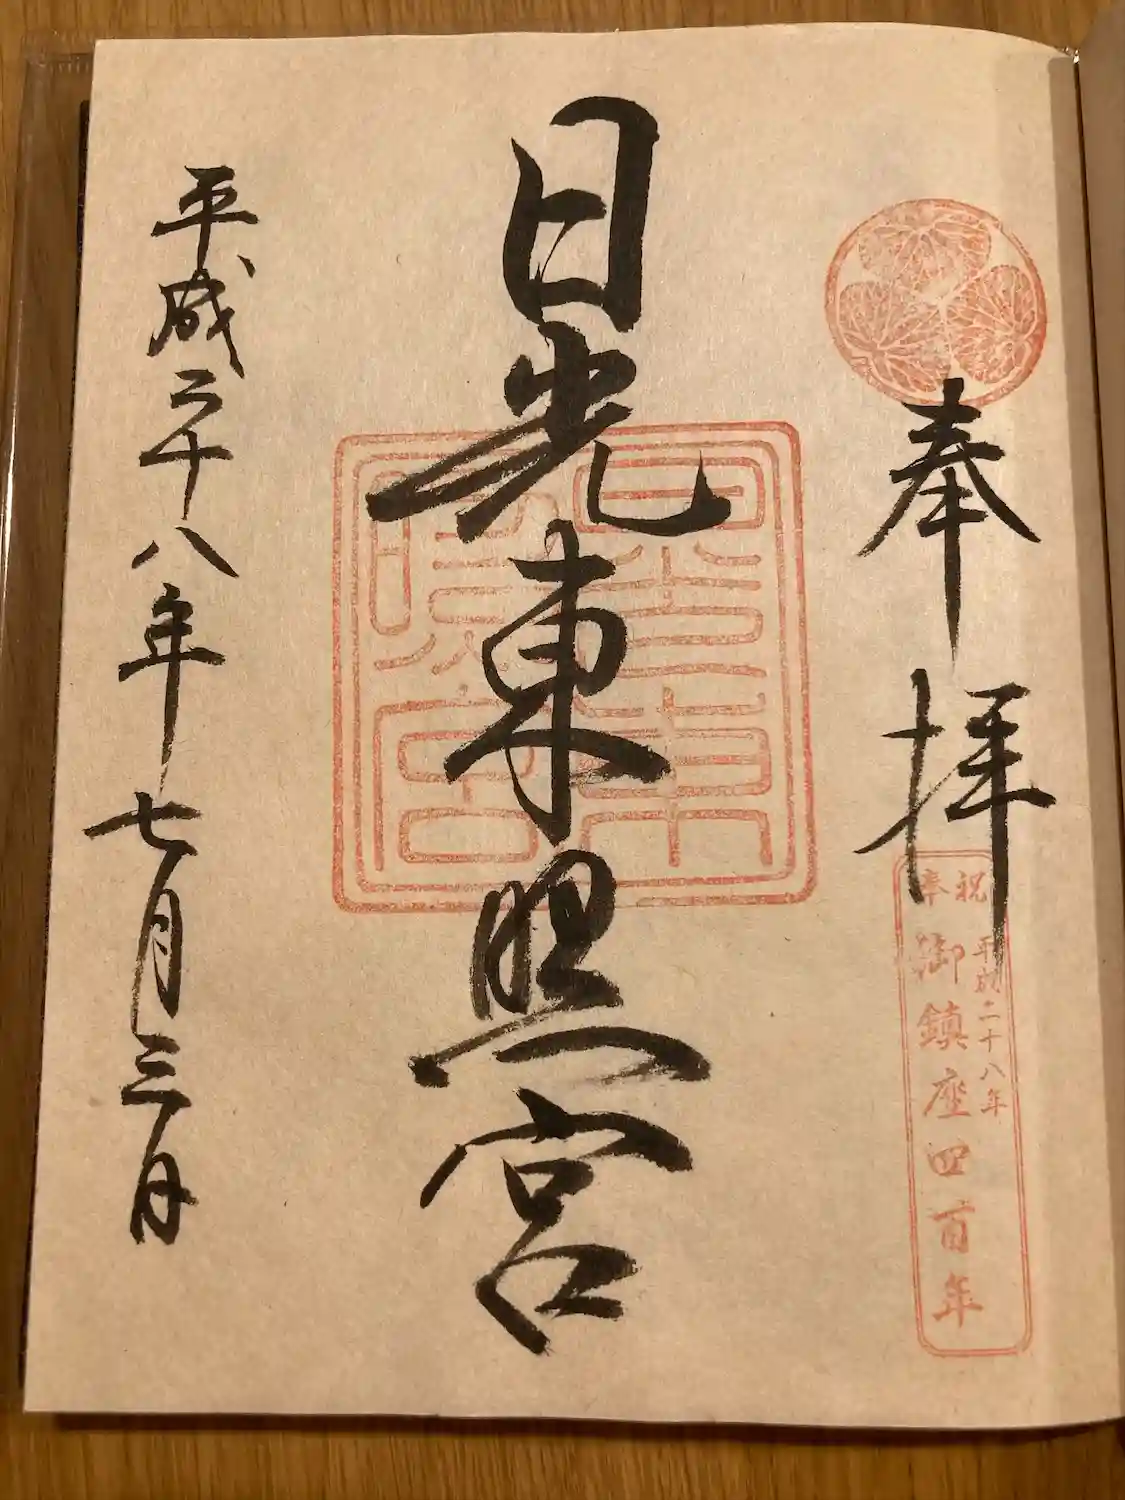 奉拝
奉祝
平成二十八年
御鎮座四百年
日光東照宮
平成二十八年七月三日